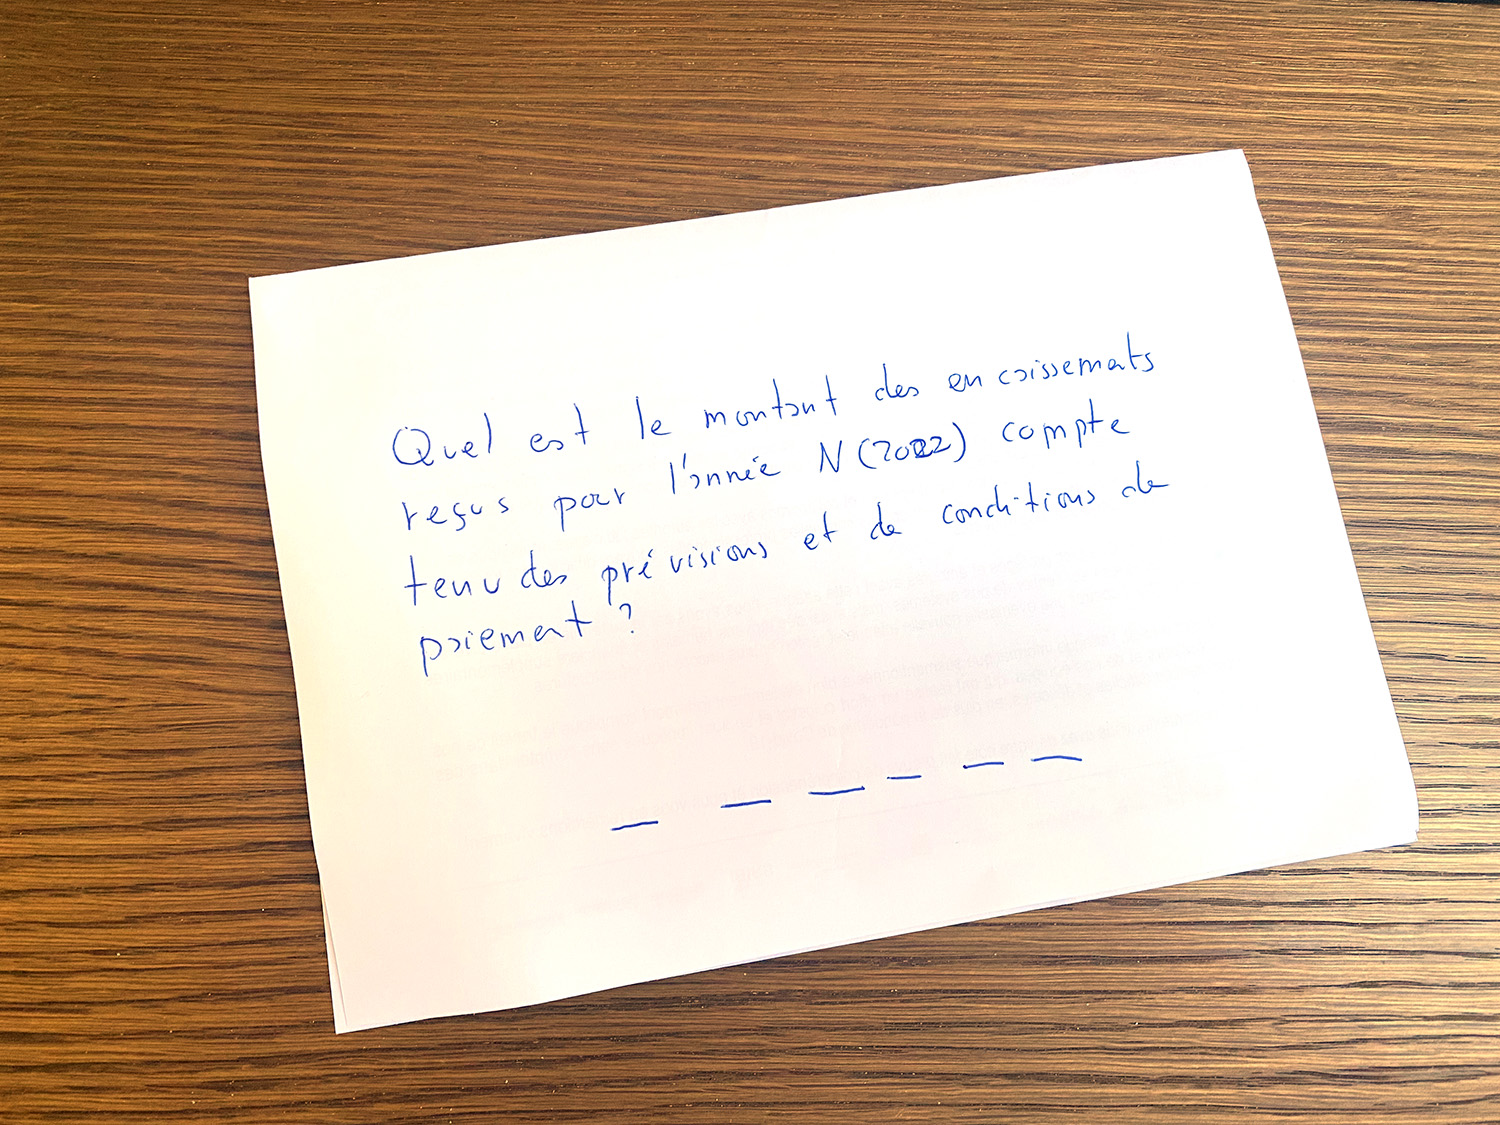 Quel est le montant des encaissements
reçus pour l'année N (2022) compte
tenu des prévisions et de conditions de
paiement ?
_ _ _ _ _ _